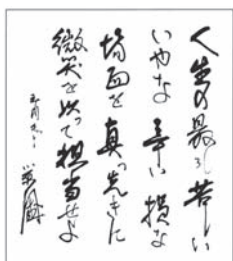 人生の最も苦しい
いやな辛い損な
場面を真っ先きに
微笑を以って担当せよ